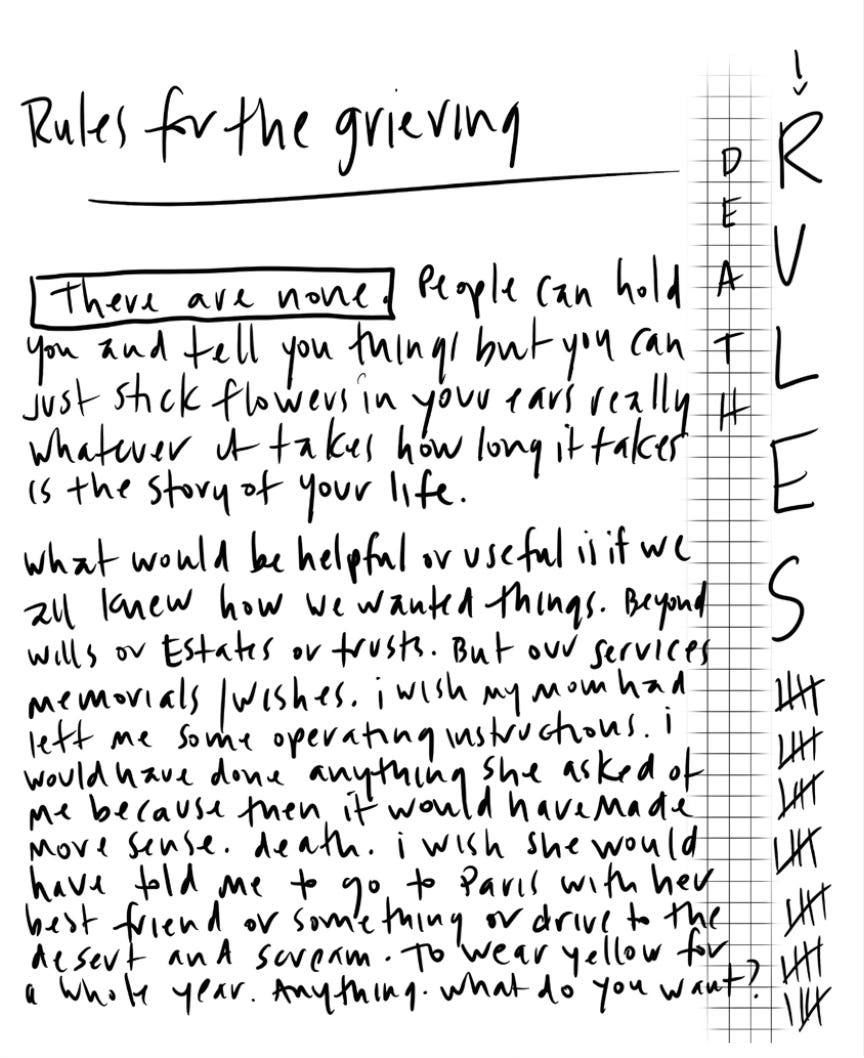 Rules for the grieving
There are none. People can hold
you and tell you things but you can
just stick flowers in your ears really
whatever it takes how long it takes
is the story of your life.
what would be helpful or useful is if we
all knew how we wanted things. Beyond
wills or Estates or trusts. But our services
memorials/wishes. i wish my mom had
left me some operating instructions. i
would have done anything she asked of
me because then it would have made
more sense. death. i wish she would
have told me to go to Paris with her
best friend or something or drive to the
desert and scream. To wear yellow for
a whole year. Anything. what do you want?
DEATH
! RULES